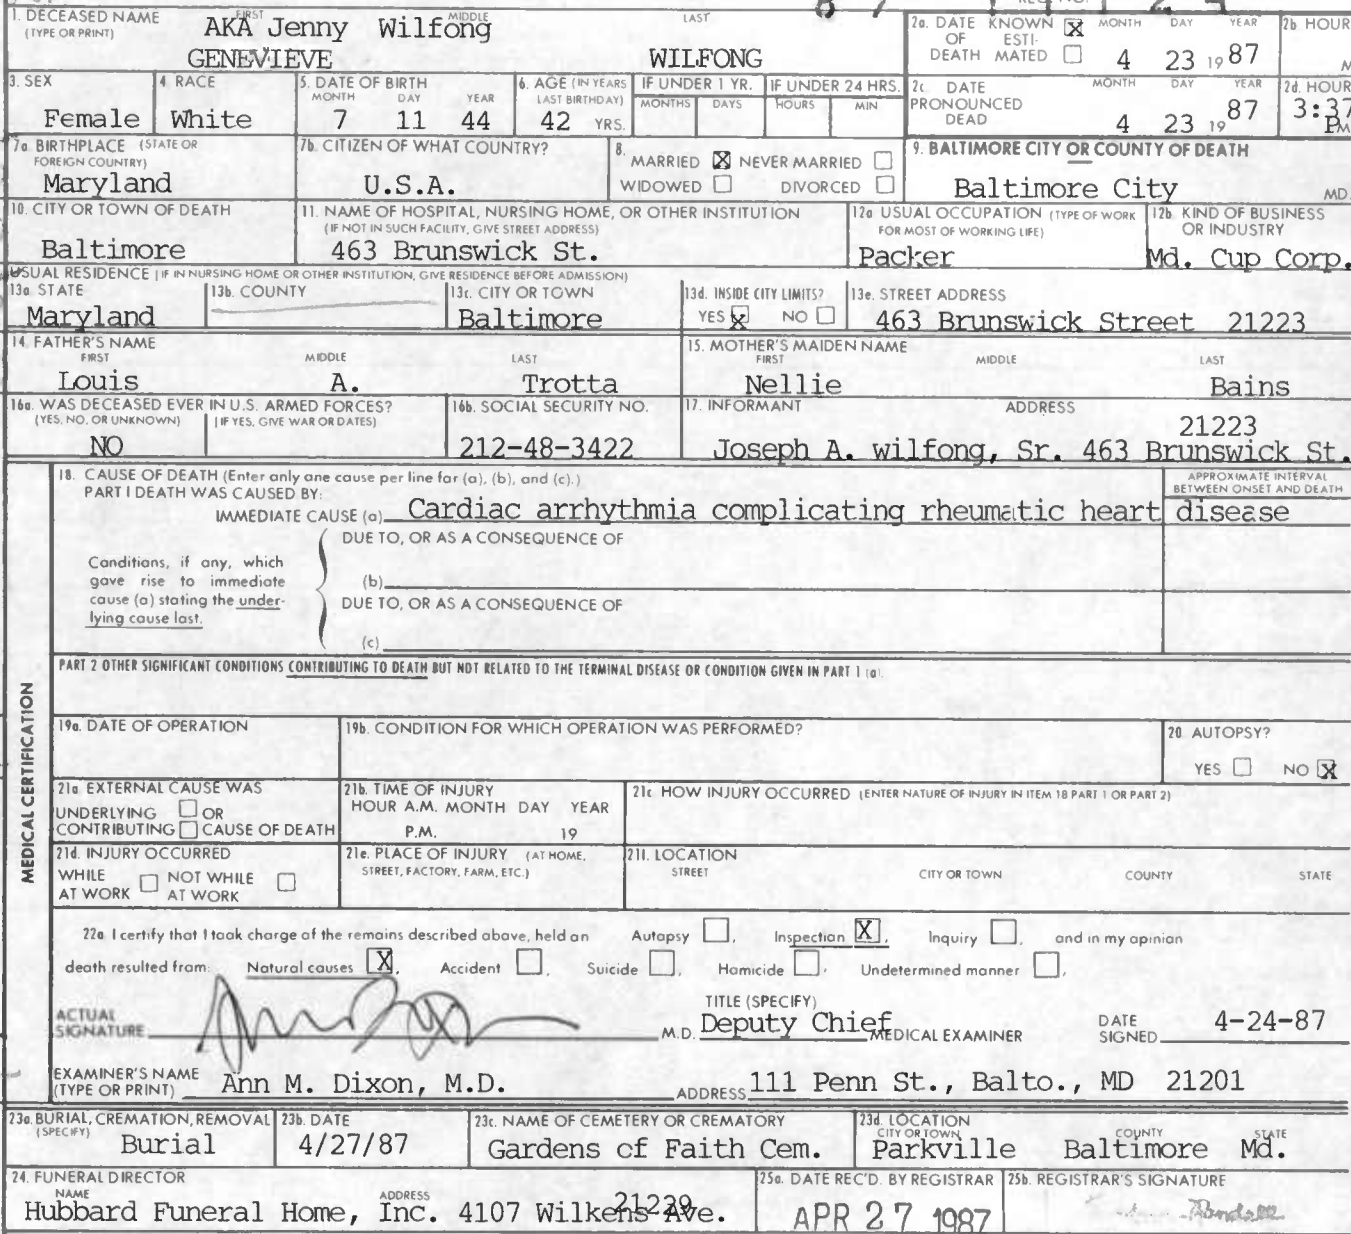 1. DECEASED NAME FIRST MIDDLE LAST
(TYPE OR PRINT) AKA Jenny Wilfong
GENEVIEVE WILFONG
2a. DATE KNOWN X MONTH DAY YEAR
OF ESTI-
DEATH MATED 4 23 1987
2b HOUR
M
3. SEX
Female
4. RACE
White
5. DATE OF BIRTH
MONTH DAY YEAR
7 11 44
6. AGE (IN YEARS
LAST BIRTHDAY)
42 YRS.
IF UNDER 1 YR.
MONTHS DAYS
IF UNDER 24 HRS.
HOURS MIN
2c. DATE MONTH DAY YEAR
PRONOUNCED
DEAD 4 23 1987
2d. HOUR
3:37
PM
7a. BIRTHPLACE (STATE OR
FOREIGN COUNTRY)
Maryland
7b. CITIZEN OF WHAT COUNTRY?
U.S.A.
8.
MARRIED X NEVER MARRIED
WIDOWED DIVORCED
9. BALTIMORE CITY OR COUNTY OF DEATH
Baltimore City MD.
10. CITY OR TOWN OF DEATH
Baltimore
11. NAME OF HOSPITAL, NURSING HOME, OR OTHER INSTITUTION
(IF NOT IN SUCH FACILITY, GIVE STREET ADDRESS)
463 Brunswick St.
12a USUAL OCCUPATION (TYPE OF WORK
FOR MOST OF WORKING LIFE)
Packer
12b. KIND OF BUSINESS
OR INDUSTRY
Md. Cup Corp.
USUAL RESIDENCE (IF IN NURSING HOME OR OTHER INSTITUTION, GIVE RESIDENCE BEFORE ADMISSION)
13a. STATE
Maryland
13b. COUNTY
13c. CITY OR TOWN
Baltimore
13d. INSIDE CITY LIMITS?
YES X NO
13e. STREET ADDRESS
463 Brunswick Street 21223
14. FATHER'S NAME
FIRST MIDDLE LAST
Louis A. Trotta
15. MOTHER'S MAIDEN NAME
FIRST MIDDLE LAST
Nellie Bains
16a. WAS DECEASED EVER IN U.S. ARMED FORCES?
(YES, NO, OR UNKNOWN) (IF YES, GIVE WAR OR DATES)
NO
16b. SOCIAL SECURITY NO.
212-48-3422
17. INFORMANT ADDRESS
21223
Joseph A. wilfong, Sr. 463 Brunswick St.
MEDICAL CERTIFICATION
18. CAUSE OF DEATH (Enter only one cause per line for (a), (b), and (c).)
PART I DEATH WAS CAUSED BY:
APPROXIMATE INTERVAL
BETWEEN ONSET AND DEATH
IMMEDIATE CAUSE (a) Cardiac arrhythmia complicating rheumatic heart disease
DUE TO, OR AS A CONSEQUENCE OF
Conditions, if any, which
gave rise to immediate
cause (a) stating the under-
lying cause last.
(b)
DUE TO, OR AS A CONSEQUENCE OF
(c)
PART 2 OTHER SIGNIFICANT CONDITIONS CONTRIBUTING TO DEATH BUT NOT RELATED TO THE TERMINAL DISEASE OR CONDITION GIVEN IN PART 1 (a).
19a. DATE OF OPERATION
19b. CONDITION FOR WHICH OPERATION WAS PERFORMED?
20. AUTOPSY?
YES NO X
21a EXTERNAL CAUSE WAS
UNDERLYING OR
CONTRIBUTING CAUSE OF DEATH
21b. TIME OF INJURY
HOUR A.M. MONTH DAY YEAR
P.M. 19
21c HOW INJURY OCCURRED (ENTER NATURE OF INJURY IN ITEM 18 PART 1 OR PART 2)
21d. INJURY OCCURRED
WHILE NOT WHILE
AT WORK AT WORK
21e. PLACE OF INJURY (AT HOME,
STREET, FACTORY, FARM, ETC.)
21f. LOCATION
STREET CITY OR TOWN COUNTY STATE
22a I certify that I took charge of the remains described above, held an Autopsy , Inspection X , Inquiry , and in my opinion
death resulted from: Natural causes X , Accident , Suicide , Homicide , Undetermined manner ,
ACTUAL
SIGNATURE M.D.
TITLE (SPECIFY)
Deputy Chief MEDICAL EXAMINER
DATE
SIGNED 4-24-87
EXAMINER'S NAME
(TYPE OR PRINT) Ann M. Dixon, M.D. ADDRESS 111 Penn St., Balto., MD 21201
23a. BURIAL, CREMATION, REMOVAL
(SPECIFY) Burial
23b. DATE
4/27/87
23c. NAME OF CEMETERY OR CREMATORY
Gardens of Faith Cem.
23d. LOCATION
CITY OR TOWN COUNTY STATE
Parkville Baltimore Md.
24. FUNERAL DIRECTOR
NAME ADDRESS
21229
Hubbard Funeral Home, Inc. 4107 Wilkens Ave.
25a. DATE REC'D. BY REGISTRAR
APR 27 1987
25b. REGISTRAR'S SIGNATURE